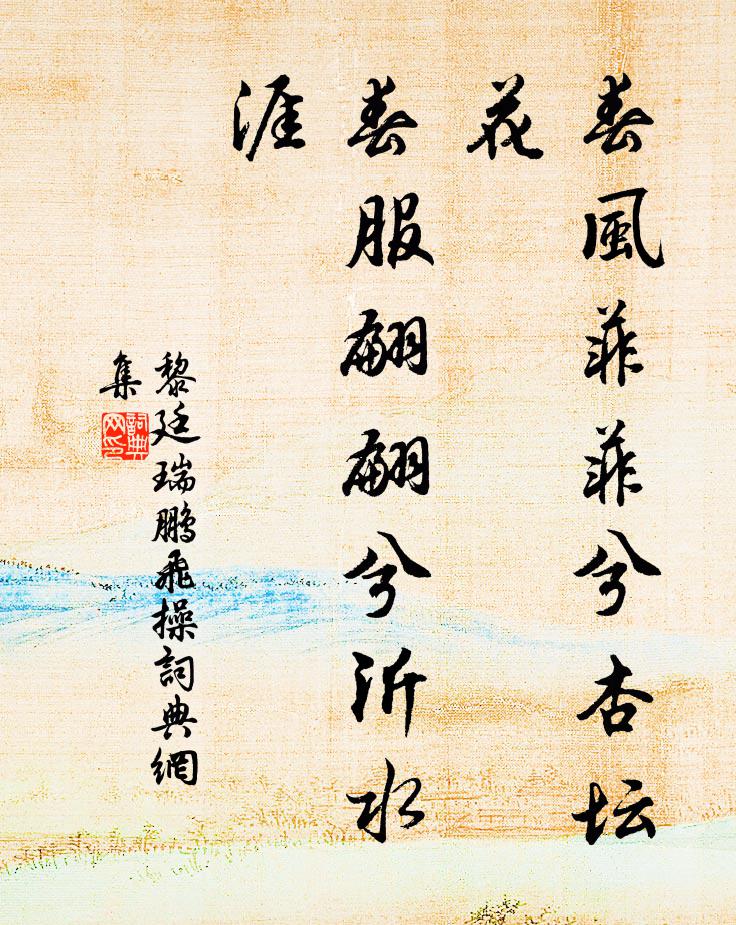 春風菲菲兮杏坛
花
春服翩翩兮沂水
涯
黎廷瑞鵬飛操詞典網
集
詞典
网印